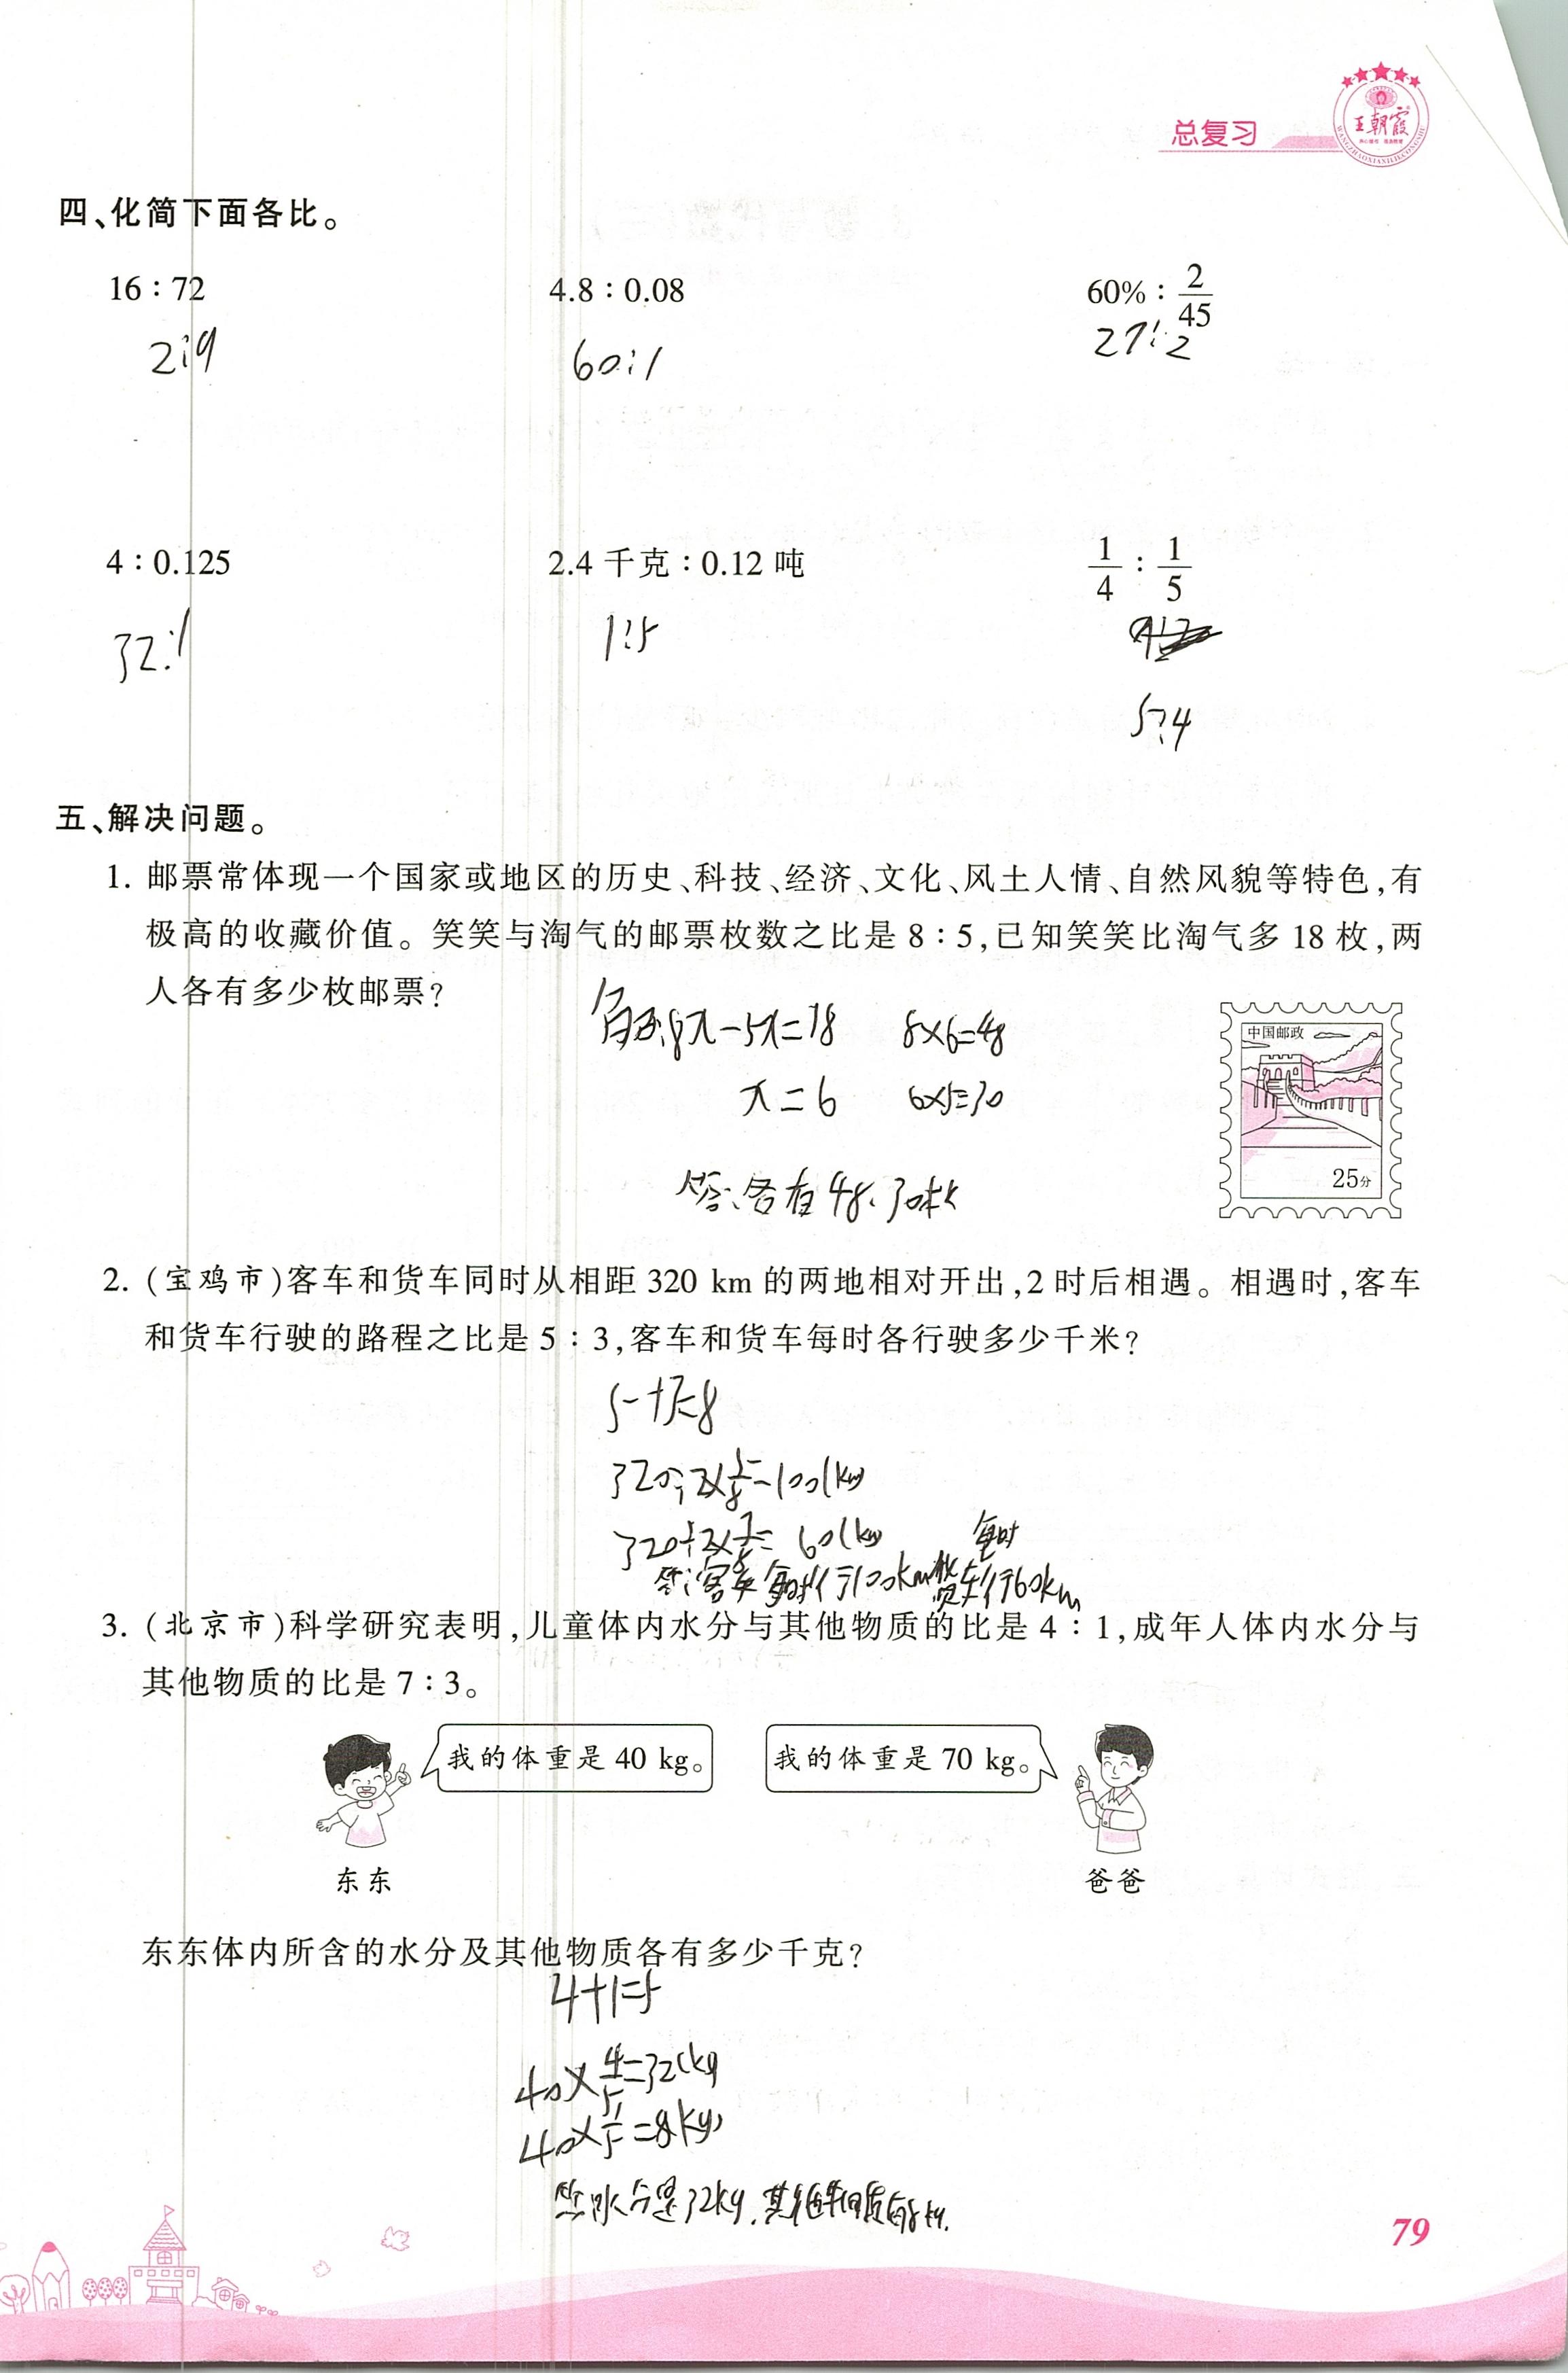 总复习
王朝霞
四、化简下面各比。
16∶72 4.8∶0.08 60%∶2/45
2:9 60:1 27:2
4∶0.125 2.4 千克∶0.12 吨 1/4∶1/5
32:1 1:5
5:4
五、解决问题。
1. 邮票常体现一个国家或地区的历史、科技、经济、文化、风土人情、自然风貌等特色,有
极高的收藏价值。笑笑与淘气的邮票枚数之比是 8∶5,已知笑笑比淘气多 18 枚,两
人各有多少枚邮票?
8x-5x=18 8×6=48
x=6 6×5=30
答:各有48、30枚
中国邮政
25分
2. (宝鸡市)客车和货车同时从相距 320 km 的两地相对开出,2 时后相遇。相遇时,客车
和货车行驶的路程之比是 5∶3,客车和货车每时各行驶多少千米?
5+3=8
320÷2×5/8=100(km)
320÷2×3/8=60(km)
每时
答:客车每时行100km货车行60km
3. (北京市)科学研究表明,儿童体内水分与其他物质的比是 4∶1,成年人体内水分与
其他物质的比是 7∶3。
我的体重是 40 kg。 我的体重是 70 kg。
东东 爸爸
东东体内所含的水分及其他物质各有多少千克?
4+1=5
40×4/5=32(kg
40×1/5=8kg)
答:水分是32kg,其他物质有8kg.
79